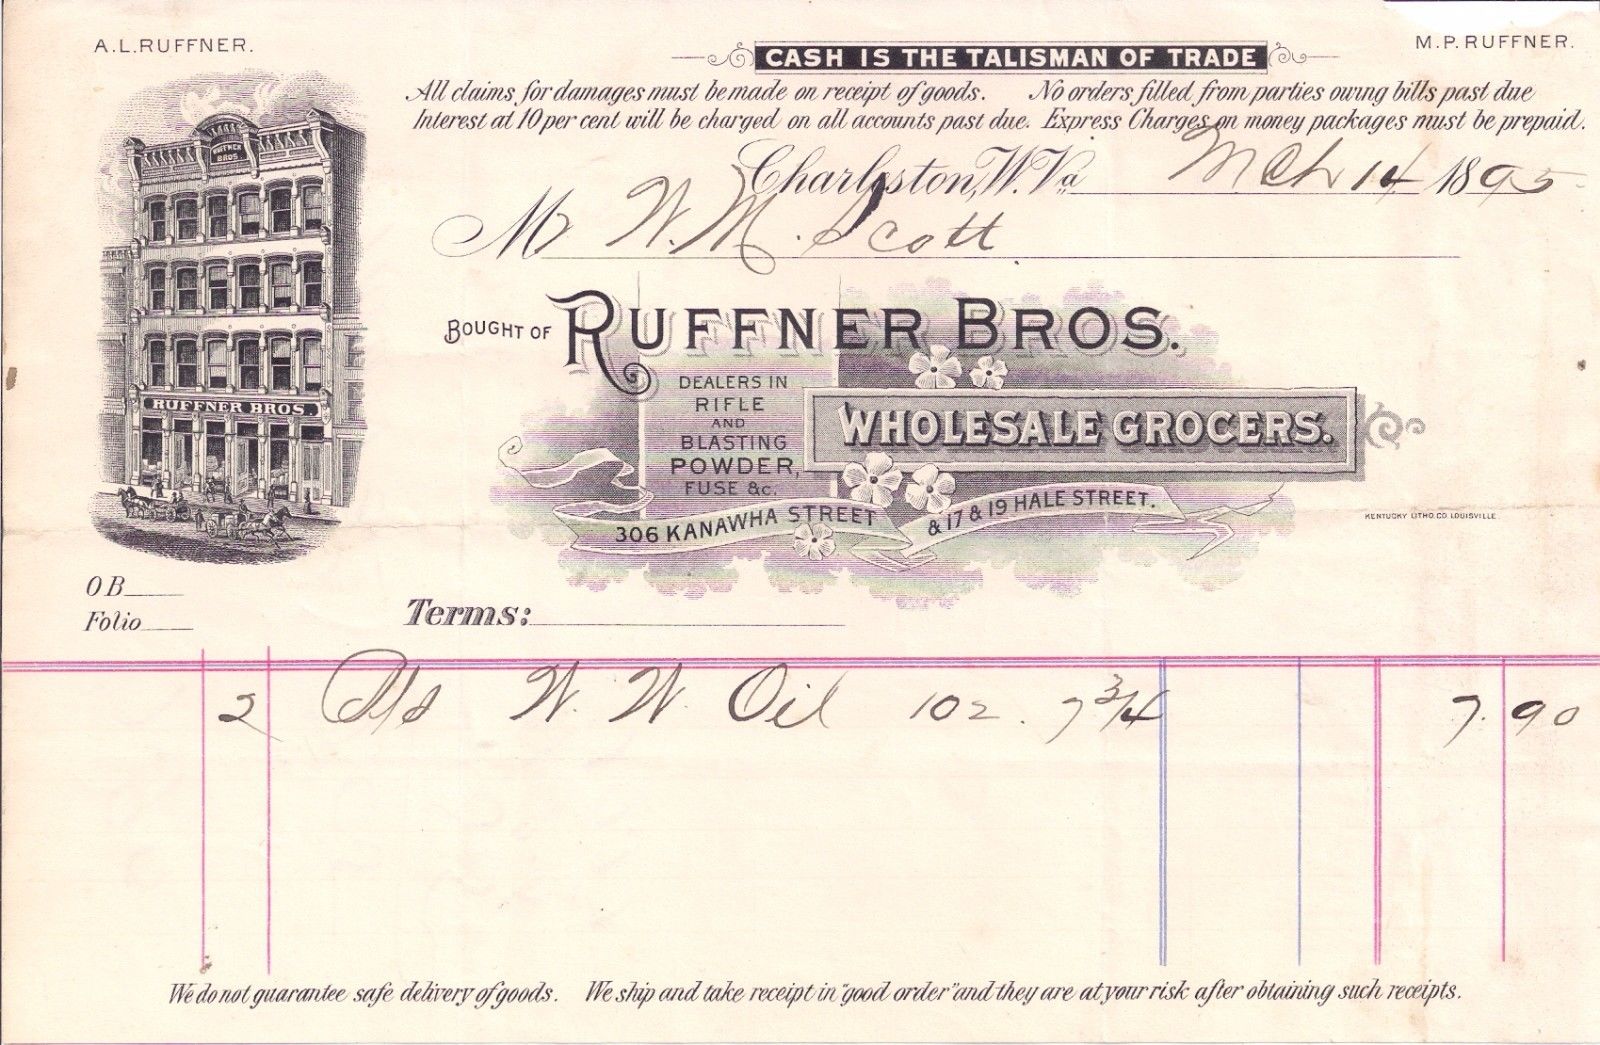 A.L. RUFFNER.
CASH IS THE TALISMAN OF TRADE
M.P. RUFFNER.
All claims for damages must be made on receipt of goods. No orders filled from parties owing bills past due
Interest at 10 per cent will be charged on all accounts past due. Express Charges on money packages must be prepaid.
Charleston, W. Va Mch 14 1895
RUFFNER BROS
Mr W. M. Scott
BOUGHT OF RUFFNER BROS.
DEALERS IN
RIFLE
AND
BLASTING
POWDER,
FUSE &c.
WHOLESALE GROCERS.
RUFFNER BROS.
306 KANAWHA STREET & 17 & 19 HALE STREET.
KENTUCKY LITHO. CO. LOUISVILLE.
O B
Folio
Terms:
2 W. W. Oil 102. 7 3/4 7.90
We do not guarantee safe delivery of goods. We ship and take receipt in "good order" and they are at your risk after obtaining such receipts.